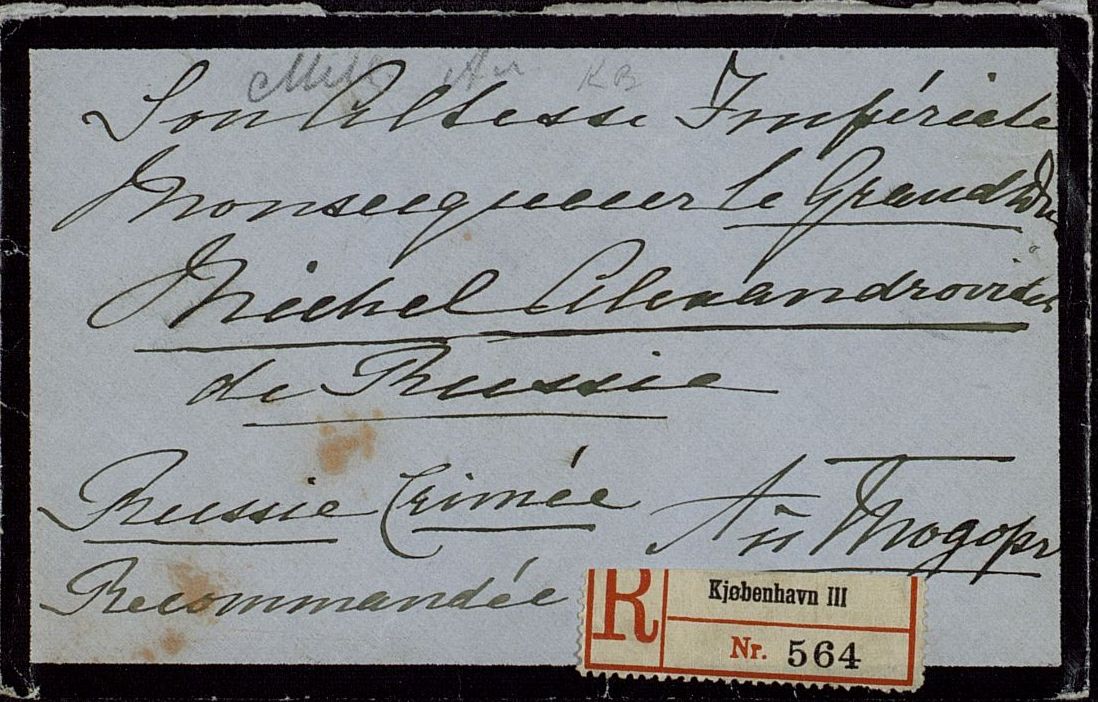 KB
Son Altesse Impériale
Monseigneur le Grand Duc
Michel Alexandrovitch
de Russie
Russie Crimée
Recommandée
R
Kjøbenhavn III
Nr. 564